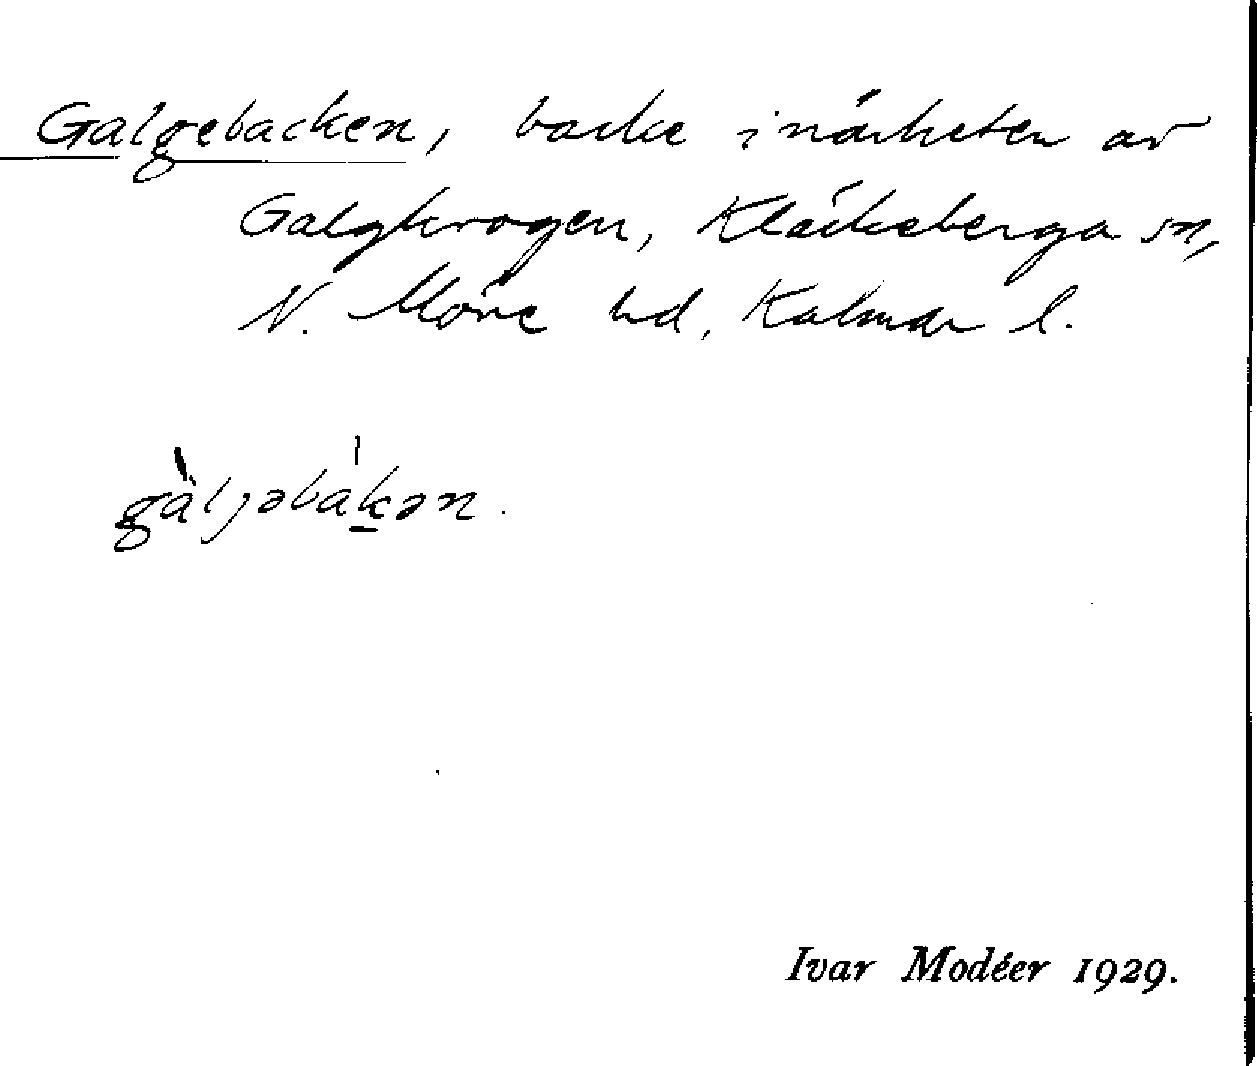 Galgebacken, backe i närheten av
Galgkrogen, Kläckeberga sn,
N. Möre hd, Kalmar l.
gàljəbákən.
Ivar Modéer 1929.